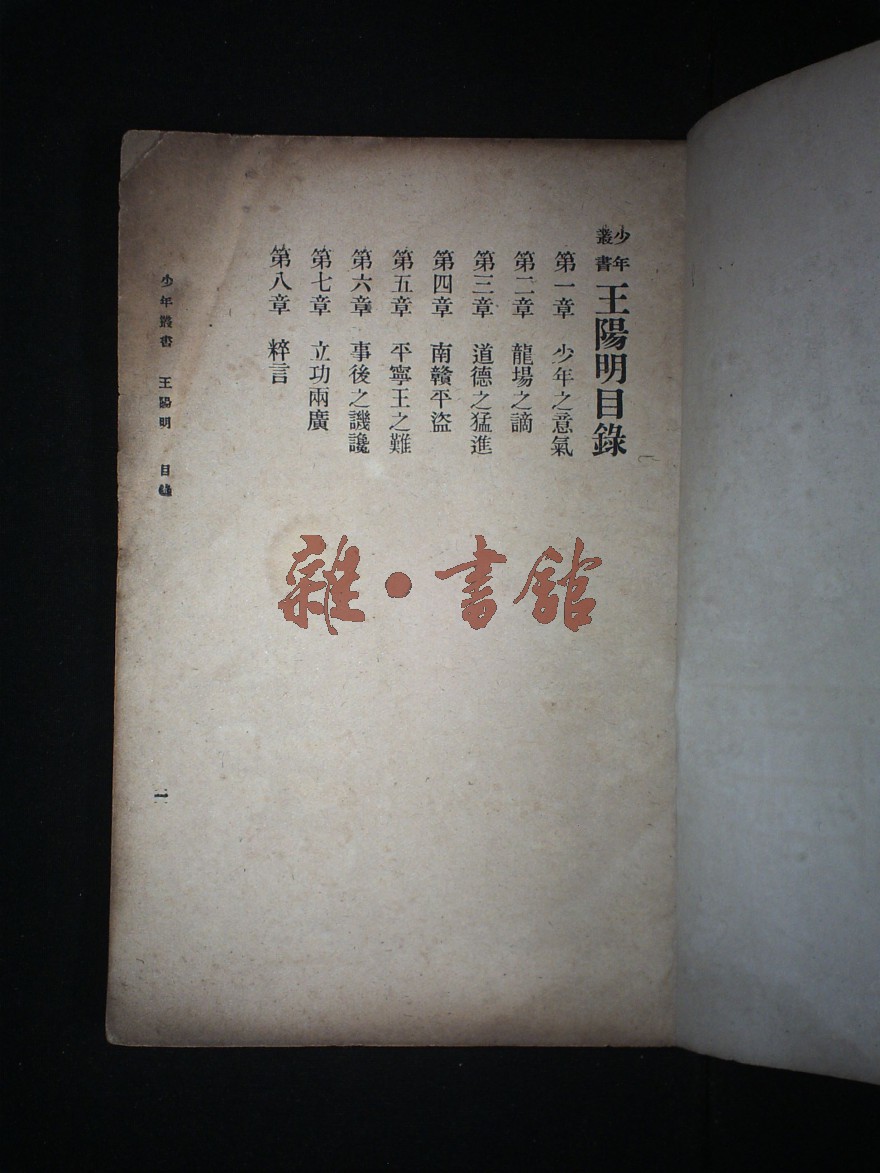 少年叢書 王陽明目錄
第一章 少年之意氣
第二章 龍場之謫
第三章 道德之猛進
第四章 南贛平盜
第五章 平寧王之難
第六章 事後之譏讒
第七章 立功兩廣
第八章 粹言
少年叢書 王陽明 目錄
一
雜·書館